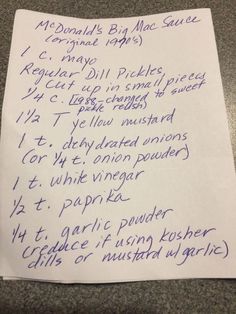 McDonald's Big Mac Sauce
(original 1970's)
1 c. mayo
Regular Dill Pickles,
Cut up in small pieces
1/4 c. (1988-changed to sweet
pickle relish)
1 1/2 T yellow mustard
1 t. dehydrated onions
(or 1/4 t. onion powder)
1 t. white vinegar
1/2 t. paprika
1/4 t. garlic powder
(reduce if using kosher
dills or mustard w/garlic)